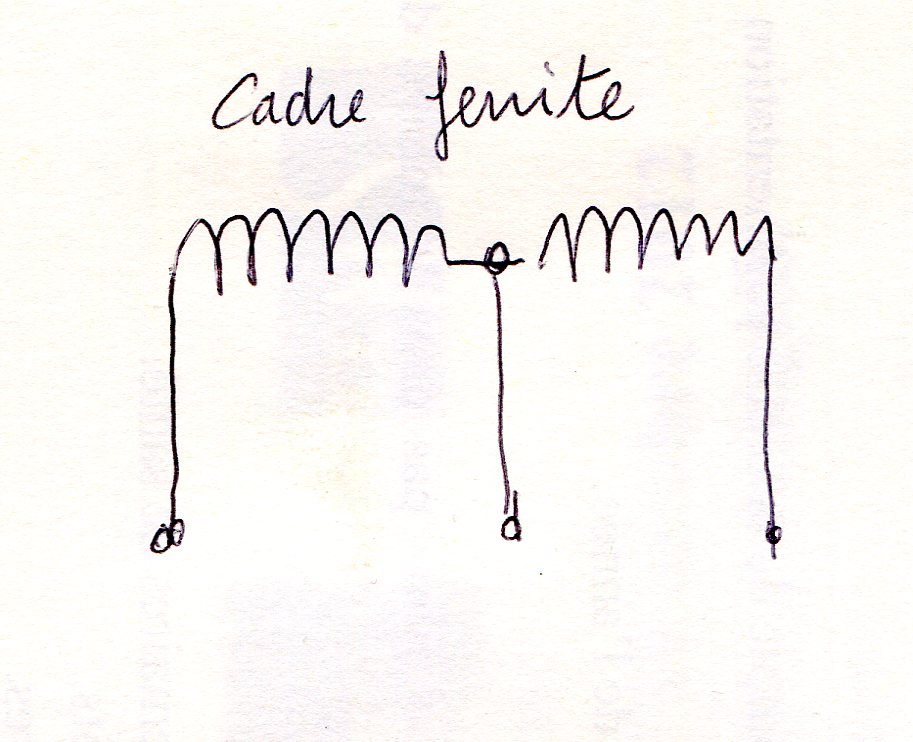 Cadre ferrite